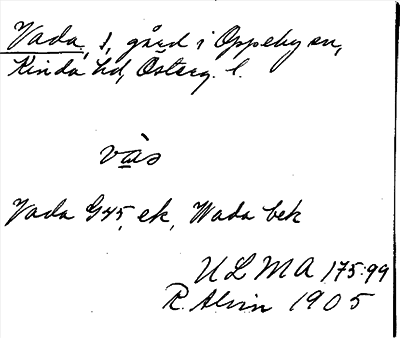 Vada, 1, gård i Oppeby sn,
Kinda hd, Österg. l.
vàs
Vada G45, ek, Wada bek
ULMA 175:99
R. Alvin 1905